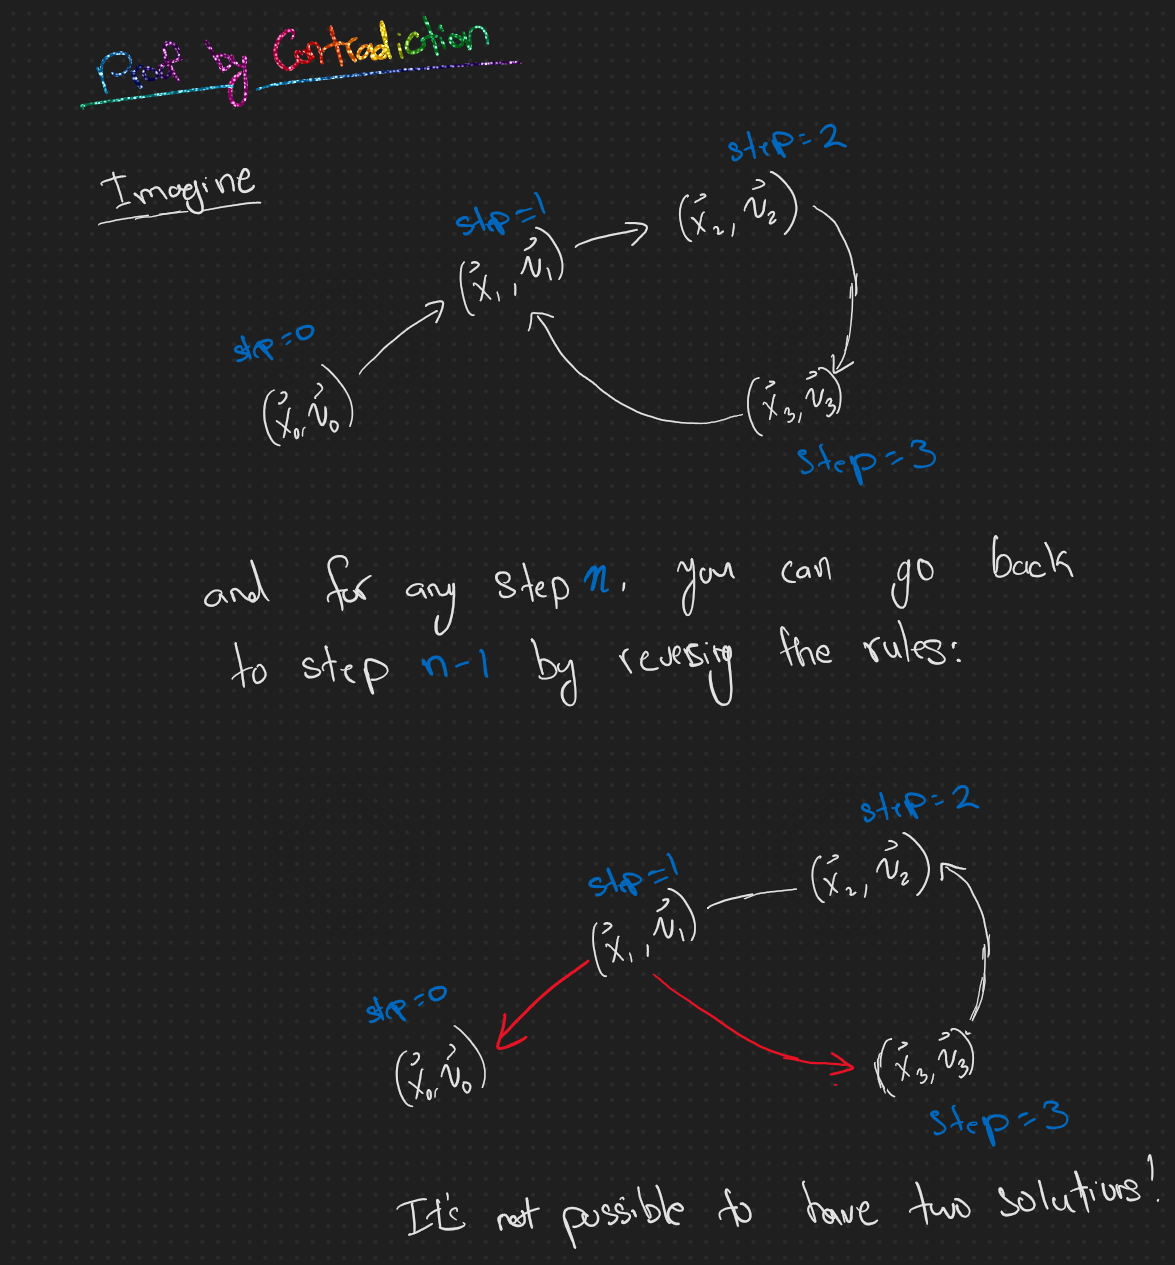 Proof by Contradiction
Imagine
step=0
(x⃗₀, v⃗₀)
step=1
(x⃗₁, v⃗₁)
step=2
(x⃗₂, v⃗₂)
(x⃗₃, v⃗₃)
step=3
and for any step n, you can go back
to step n-1 by reversing the rules:
step=2
(x⃗₂, v⃗₂)
step=1
(x⃗₁, v⃗₁)
step=0
(x⃗₀, v⃗₀)
(x⃗₃, v⃗₃)
step=3
It's not possible to have two solutions!